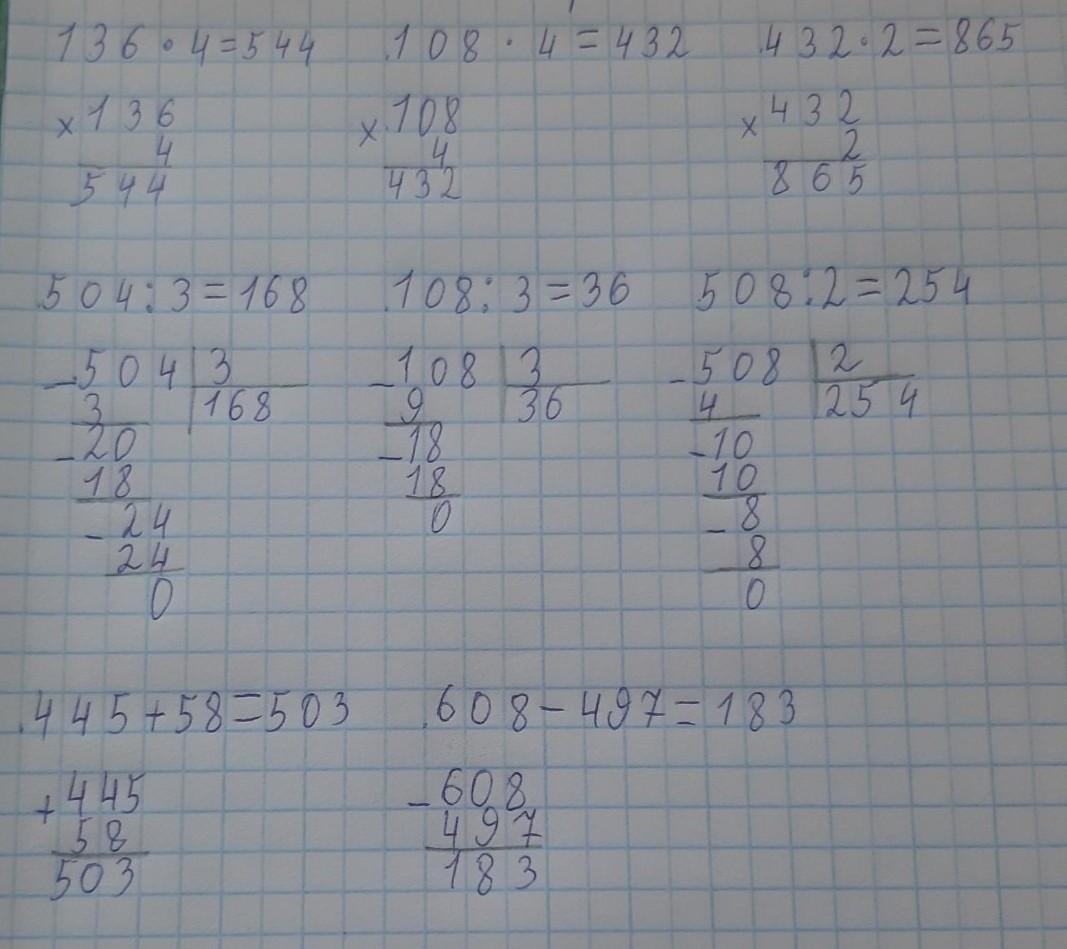 136·4=544 108·4=432 432·2=865
×136 ×108 ×432
4 4 2
544 432 865
504:3=168 108:3=36 508:2=254
-504 3 -108 3 -508 2
3 168 9 36 4 254
-20 -18 -10
18 18 10
-24 0 -8
24 8
0 0
445+58=503 608-497=183
+445 -608
58 497
503 183